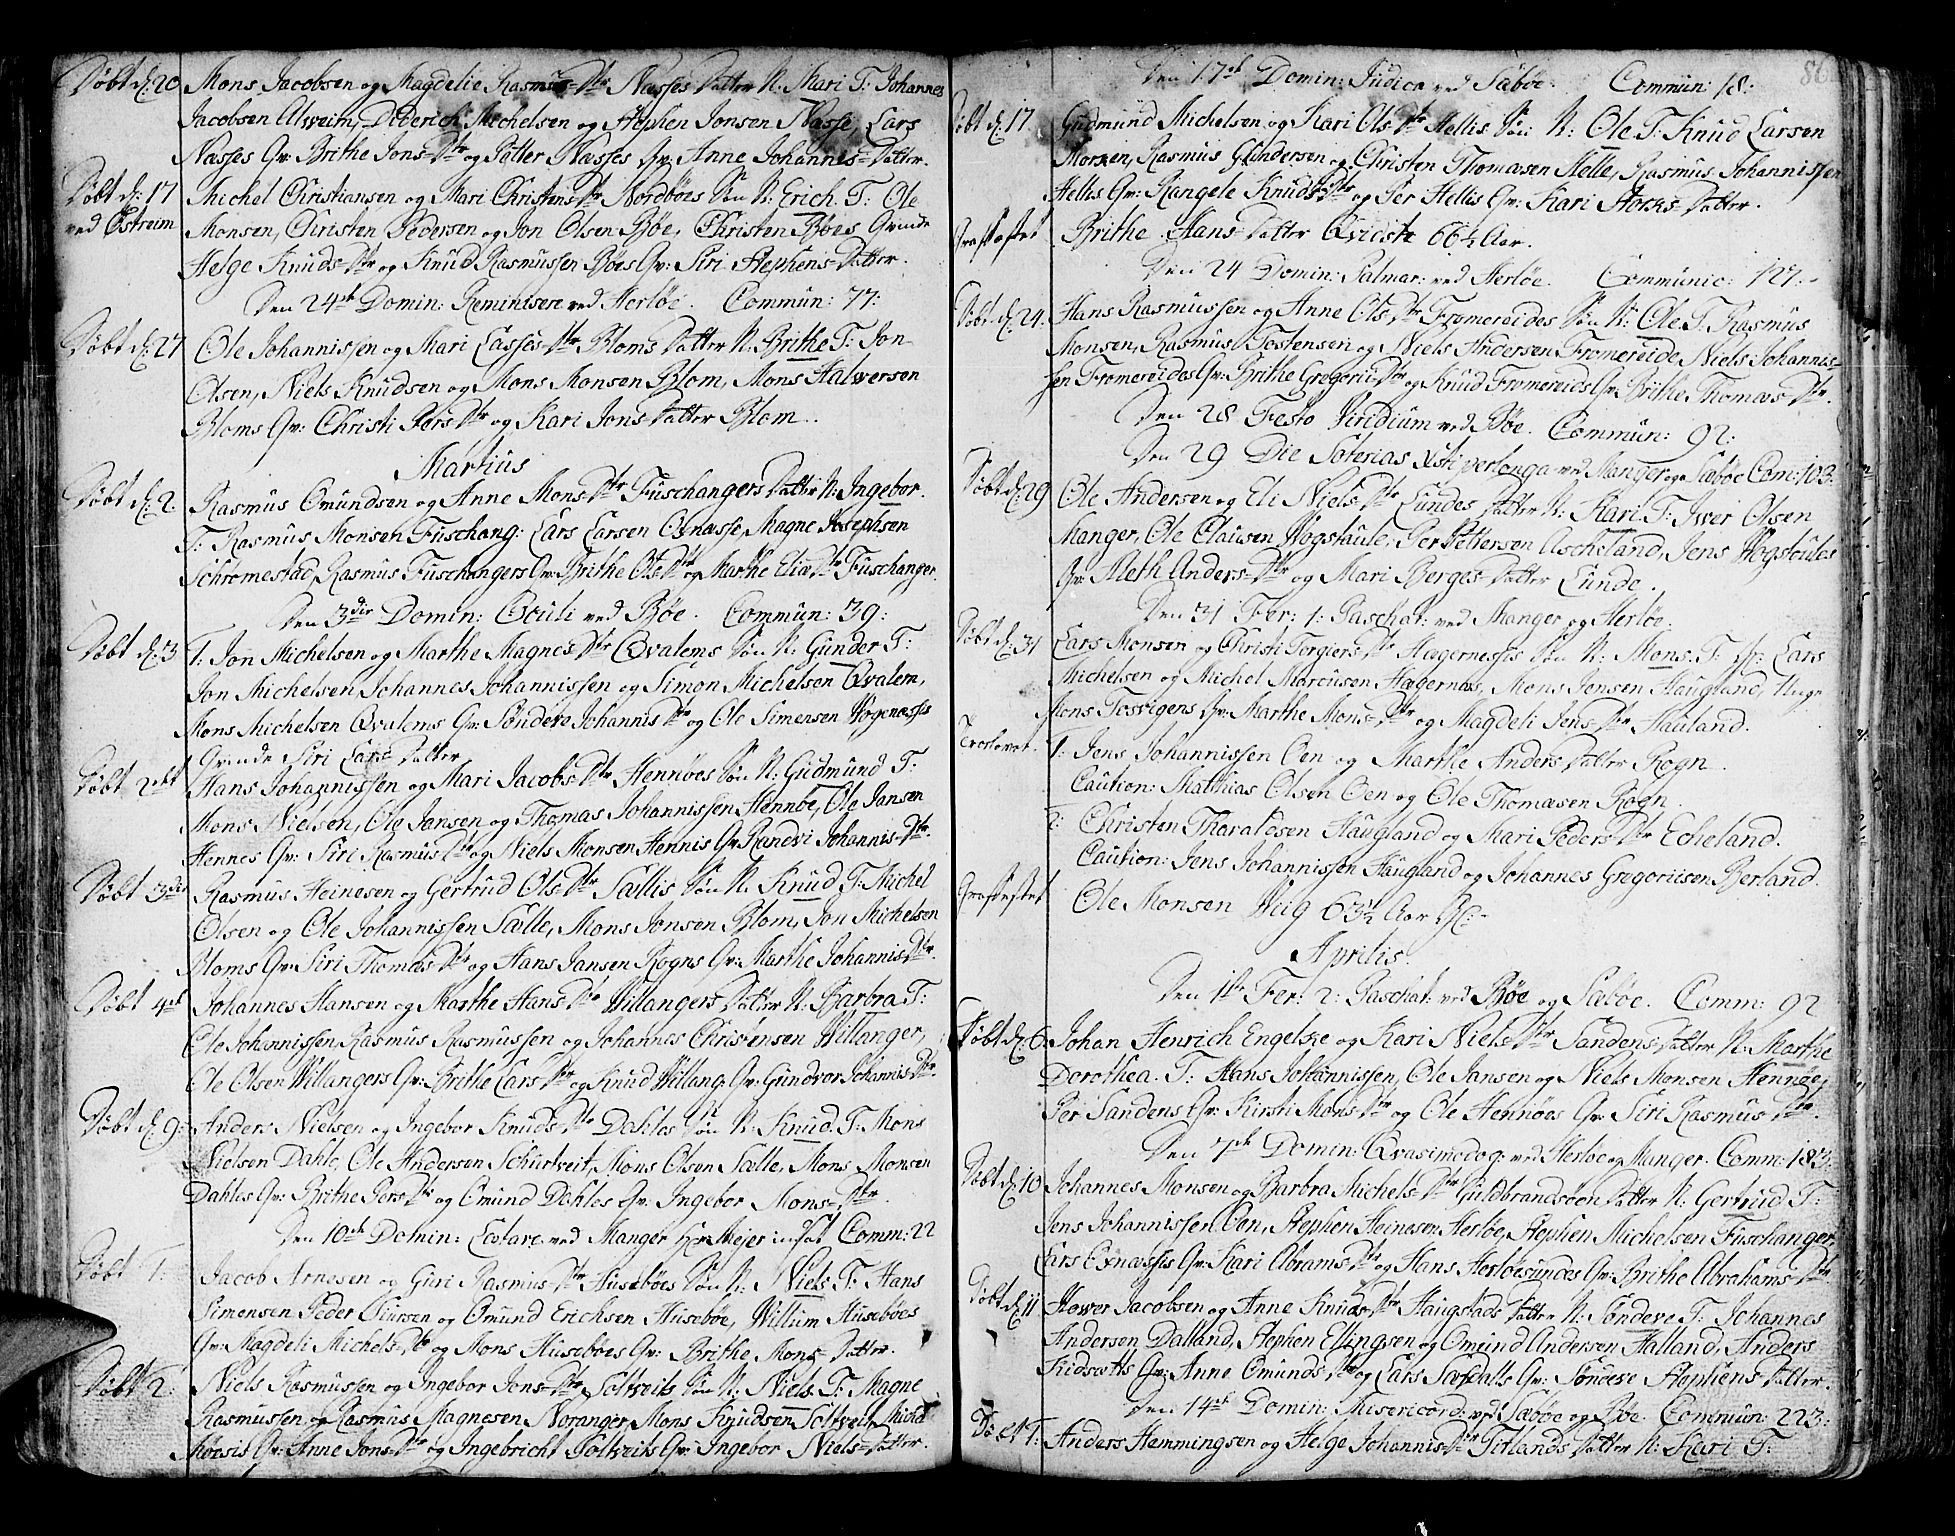 Døbt d: 20 Mons Jacobsen og Magdelie Rasmus Dtr Næsses Datter N: Mari T: Johannes
Jacobsen Alveim, Diderich Michelsen og Stephen Jonsen Næsse, Lars
Næsses Qv: Brithe Jons Dtr og Petter Næsses Qv: Anne Johannes Datter.
Døbt d: 17 Michel Christiansen og Mari Christens Dtr Nordbøes Søn N: Erich. T: Ole
ved Østreim Monsen, Christen Pedersen og Jon Olsen Bøe, Christen Bøes Qvinde
Helge Knuds Dtr og Knud Rasmussen Bøes Qv: Siri Stephens Datter.
Den 24de Domin: Reminisere ved Herløe. Commun: 77:
Døbt d: 27 Ole Johannissen og Mari Lasses Dtr Bloms Datter N: Brithe T: Jon
Olsen, Niels Knudsen og Mons Monsen Blom, Mons Halversen
Bloms Qv: Christi Pers Dtr og Kari Jons Datter Blom.
Martius
Døbt d: 2. Rasmus Omundsen og Anne Mons Dtr Fuschangers Datter N: Ingebor.
T: Rasmus Monsen Fuschang: Lars Larsen Osnæsse, Magne Josephsen
Schromestad, Rasmus Fuschangers Qv: Brithe Ols Dtr og Marthe Eliæ Dtr Fuschanger.
Den 3die Domin: Oculi ved Bøe. Commun: 39:
Døbt d: 3 T: Jon Michelsen og Marthe Magnes Dtr Qvalems Søn N: Gunder T:
Jon Michelsen Johannes Johannissen og Simon Michelsen Qvalem,
Mons Michelsen Qvalems Qv: Søndeve Johannis Dtr og Ole Simensen Høgenæssis
Qvinde Siri Lars Datter
Døbt 2det Hans Johannissen og Mari Jacobs Dtr Hennøes Søn N: Gudmund T:
Mons Nielsen, Ole Jansen og Thomas Johannissen Hennøe, Ole Jansen
Hennes Qv: Siri Rasmus Dtr og Niels Monsen Hennis Qv: Randvi Johannis Dtr.
Døbt 3die Rasmus Heinesen og Gertrud Ols Dtr Sællis Søn N: Knud T: Michel
Olsen og Ole Johannissen Sælle, Mons Jonsen Blom, Jon Michelsen
Bloms Qv: Siri Thomæs Dtr og Hans Jansen Rogns Qv: Marthe Johannis Dtr.
Døbt 4de Johannes Hansen og Marthe Hans Dtr Villangers Datter N: Barbra T:
Ole Johannissen Rasmus Rasmussen og Johannes Christensen Villanger,
Ole Olsen Villangers Qv: Brithe Lars Dtr og Knud Villang: Qv: Gundvor Johannis Dtr.
Døbt d: 9: Anders Nielsen og Ingebor Knuds Dtr Dahles Søn N: Knud T: Mons
Nielsen Dahle, Ole Andersen Schurtveit, Mons Olsen Sælle, Mons Monsen
Dahles Qv: Brithe Pers Dtr og Omund Dahles Qv: Ingebor Mons Dtr.
Den 10de Domin: Lætare ved Manger Hr: Meijer Comm: 22
Døbt 1: Jacob Arnesen og Guri Rasmus Dtr Husebøes Søn N: Niels T: Hans
Simensen Peder Siursen og Omund Erichsen Husebøe, Villum Husebøes
Qv: Magdeli Michels Dtr og Mons Husebøes Qv: Brithe Mons Datter.
Døbt 2: Niels Rasmussen og Ingebor Jons Dtr Soltveits Søn N: Niels T: Magne
Rasmussen og Rasmus Magnesen Noranger, Mons Knudsen Soltveit, Michel
Møesis Qv: Anne Jons Dtr og Ingebricht Soltveits Qv: Ingebor Niels Datter.
86
Den 17de Domin: Judica ved Sæbøe. Commun: 18:
Døbt d: 17 Gudmund Michelsen og Kari Ols Dtr Hellis Søn N: Ole T: Knud Larsen
Morken, Rasmus Gundersen og Christen Thomasen Helle, Rasmus Johannissen
Hellis Qv: Rangele Knuds Dtr og Per Hellis Qv: Kari Datter.
Grafæstet Brithe Hans Datter Qviste 66½ Aar.
Den 24 Domin: Palmar: ved Herløe. Communic: 127:
Døbt d: 24: Hans Rasmussen og Anne Ols Dtr Fromereides Søn N: Ole T: Rasmus
Monsen, Rasmus Tostensen og Niels Andersen Fromereide, Niels Johannis-
sen Fromereides Qv: Brithe Gregorii Dtr og Knud Fromereids Qv: Brithe Thomæs Dtr.
Den 28 Festo Viridium ved Bøe. Commun: 92:
Den 29 Die Soterias Xsti perlonga ved Manger og Sæbøe Com: 103:
Døbt d: 29 Ole Andersen og Eli Niels Dtr Lundes Datter N: Kari T: Iver Olsen
Manger, Ole Clausen Høgstaule, Per Pettersen Ascheland, Jens Høgstoules
Qv: Aleth Anders Dtr og Mari Berges Datter Lunde.
Den 31 Fer: 1: Paschat: ved Manger og Herløe.
Døbt d: 31 Lars Monsen og Christi Torgiers Dtr Hægernessis Søn N: Mons. T: Lars
Michelsen og Michel Marcusen Hægernæs, Mons Jensen Haugland, Unge
Mons Tosvigens Qv: Marthe Mons Dtr og Magdeli Jens Dtr Hauland.
Troelovet. 1: Jens Johannissen Oen og Marthe Anders Datter Rogn.
Caution: Matthias Olsen Oen og Ole Thomæsen Rogn.
2: Christen Tharaldsen Haugland og Mari Peders Dtr Echeland.
Caution: Jens Johannissen Haugland og Johannes Gregoriisen Berland.
Grafæstet Ole Monsen Viig 63½ Aar
Aprilis.
Den 1ste Fer: 2: Paschat: ved Bøe og Sæbøe. Comm: 92
Døbt d: 6 Johan Henrich Engelske og Kari Niels Dtr Sandens Datter N: Marthe
Dorothea. T: Hans Johannissen, Ole Jansen og Niels Monsen Hennøe,
Per Sandens Qv: Kirsti Mons Dtr og Ole Hennøes Qv: Siri Rasmus Dtr.
Den 7de Domin: Qvasimodog: ved Herløe og Manger. Comm: 183:
Døbt d: 10 Johannes Monsen og Barbra Michels Dtr Guldbrandsøen Datter N: Gertrud T:
Jens Johannissen Oen, Stephen Heinesen Herløe, Stephen Michelsen Fuschanger,
Lars Osnæssis Qv: Kari Abrams Dtr og Hans Herløesundes Qv: Brithe Abrahams Dtr
Døbt d: 11 Hover Jacobsen og Anne Knuds Dtr Haugstads Datter N: Søndeve T: Johannes
Andersen Dalland, Stephen Ellingsen og Omund Andersen Halland, Anders
Kidsætts Qv: Anne Omunds Dtr og Lars Qv: Søndeve Stephens Datter.
Den 14de Domin: Misericord: ved Sæbøe og Bøe. Commun: 223:
Døbt 1: Anders Hemmingsen og Helge Johannis Dtr Titlands Datter N: Kari T: